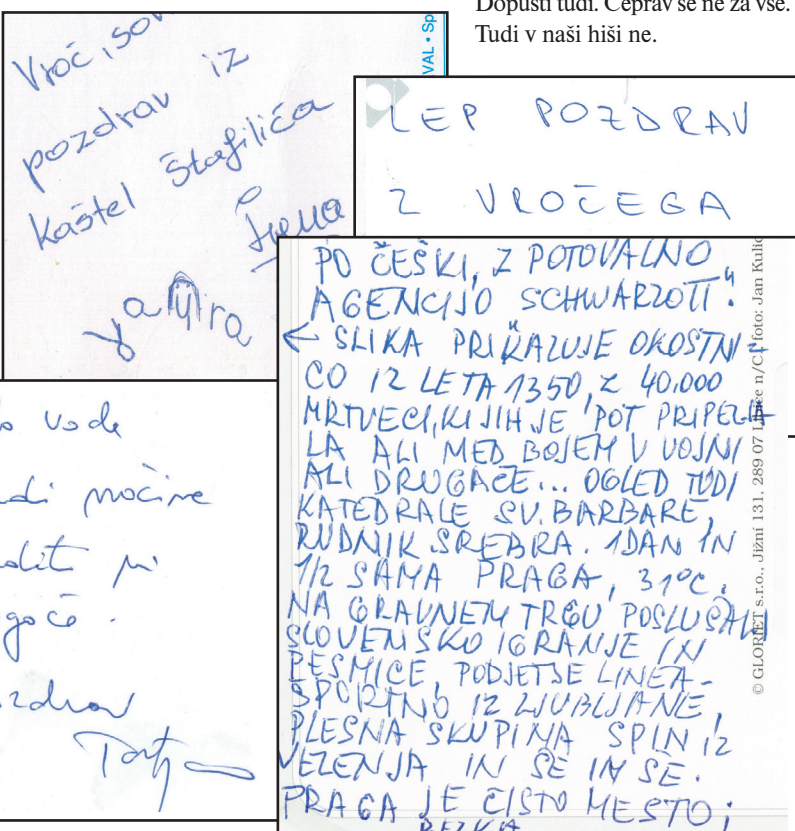 Dopusti tudi. Čeprav še ne za vse.
Tudi v naši hiši ne.
Vroč,
pozdrav iz
Kaštel Štafilića
Irena
VAL • Sp
LEP POZDRAV
Z VROČEGA
PO ČEŠKI, Z POTOVALNO
AGENCIJO SCHWARZOTT".
← SLIKA PRIKAZUJE OKOSTNI=
CO IZ LETA 1350, Z 40.000
MRTVECI, KI JIH JE POT PRIPELJA
LA ALI MED BOJEM V VOJNI
ALI DRUGAČE... OGLED TUDI
KATEDRALE SV. BARBARE,
RUDNIK SREBRA. 1 DAN IN
1/2 SAMA PRAGA, 31°C.
NA GLAVNEM TRGU POSLUŠALI
SLOVENSKO IGRANJE IN
PESMICE, PODJETJE LINEA-
ŠPORTNO IZ LJUBLJANE,
PLESNA SKUPINA SPIN IZ
VELENJA IN ŠE IN ŠE.
PRAGA JE ČISTO MESTO;
© GLORIET s.r.o., Jižní 131, 289 07 n/C, foto: Jan Kulic
vode
di močine
dit
goče.
zdrav